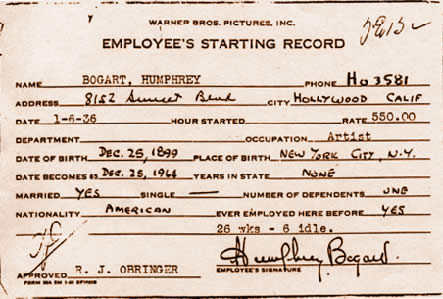 WARNER BROS. PICTURES, INC.
EMPLOYEE'S STARTING RECORD
NAME BOGART, HUMPHREY PHONE Ho 3581
ADDRESS 8152 Sunset Blvd CITY HOLLYWOOD CALIF
DATE 1-6-36 HOUR STARTED RATE 550.00
DEPARTMENT OCCUPATION Artist
DATE OF BIRTH DEC. 25, 1899 PLACE OF BIRTH NEW YORK CITY, N.Y.
DATE BECOMES 65 DEC. 25, 1964 YEARS IN STATE NONE
MARRIED YES SINGLE — NUMBER OF DEPENDENTS ONE
NATIONALITY AMERICAN EVER EMPLOYED HERE BEFORE YES
26 wks - 6 idle.
Humphrey Bogart
APPROVED R. J. OBRINGER EMPLOYEE'S SIGNATURE